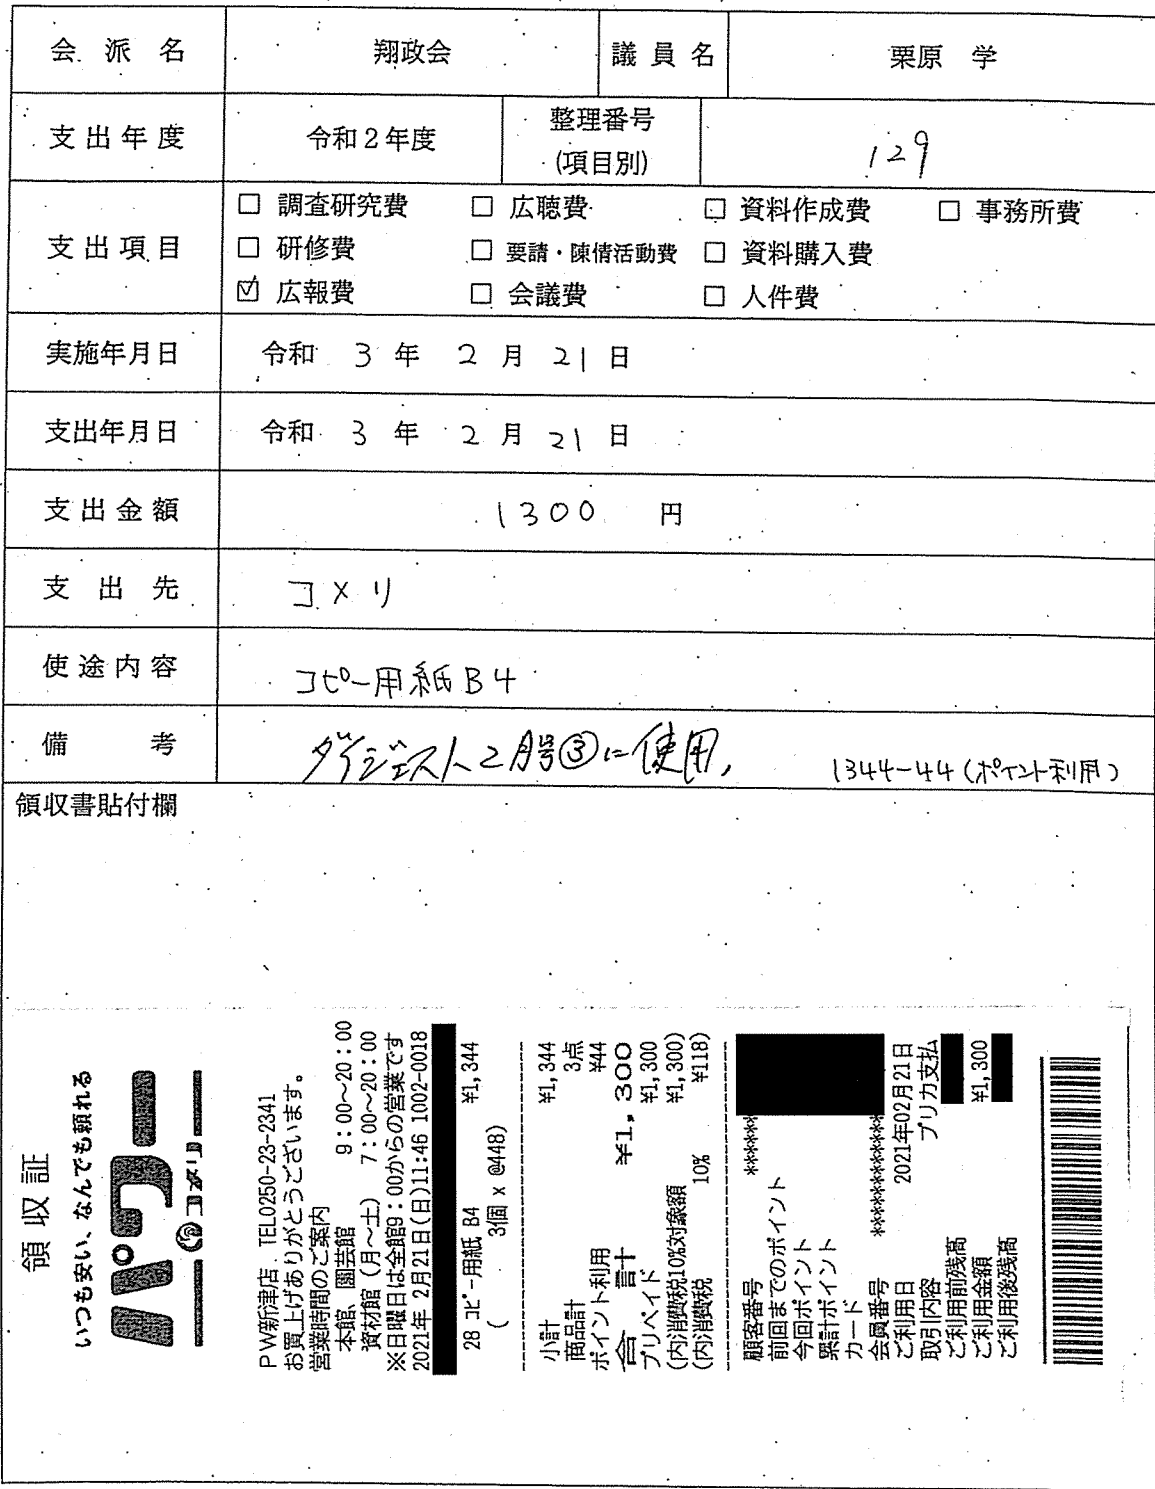 会派名 翔政会 議員名 栗原 学
支出年度 令和2年度 整理番号(項目別) 129
支出項目
□ 調査研究費 □ 広聴費 □ 資料作成費 □ 事務所費
□ 研修費 □ 要請・陳情活動費 □ 資料購入費
☑ 広報費 □ 会議費 □ 人件費
実施年月日 令和 3 年 2 月 21 日
支出年月日 令和 3 年 2 月 21 日
支出金額 1300 円
支出先 コメリ
使途内容 コピー用紙B4
備考 ダイジェスト2月号③に使用, 1344-44(ポイント利用)
領収書貼付欄
領収証
いつも安い、なんでも頼れる
パワー
コメリ
PW新津店 TEL0250-23-2341
お買上げありがとうございます。
営業時間のご案内
本館、園芸館 9:00~20:00
資材館(月~土) 7:00~20:00
※日曜日は全館9:00からの営業です
2021年 2月21日(日)11:46 1002-0018
28 コピー用紙 B4 ¥1,344
( 3個 x @448)
小計 ¥1,344
商品計 3点
ポイント利用 ¥44
合計 ¥1,300
プリペイド ¥1,300
(内消費税10%対象額 ¥1,300)
(内消費税 10% ¥118)
顧客番号 ******
前回までのポイント
今回ポイント
累計ポイント
カード
会員番号 ************
ご利用日 2021年02月21日
取引内容 プリカ支払
ご利用前残高
ご利用金額 ¥1,300
ご利用後残高